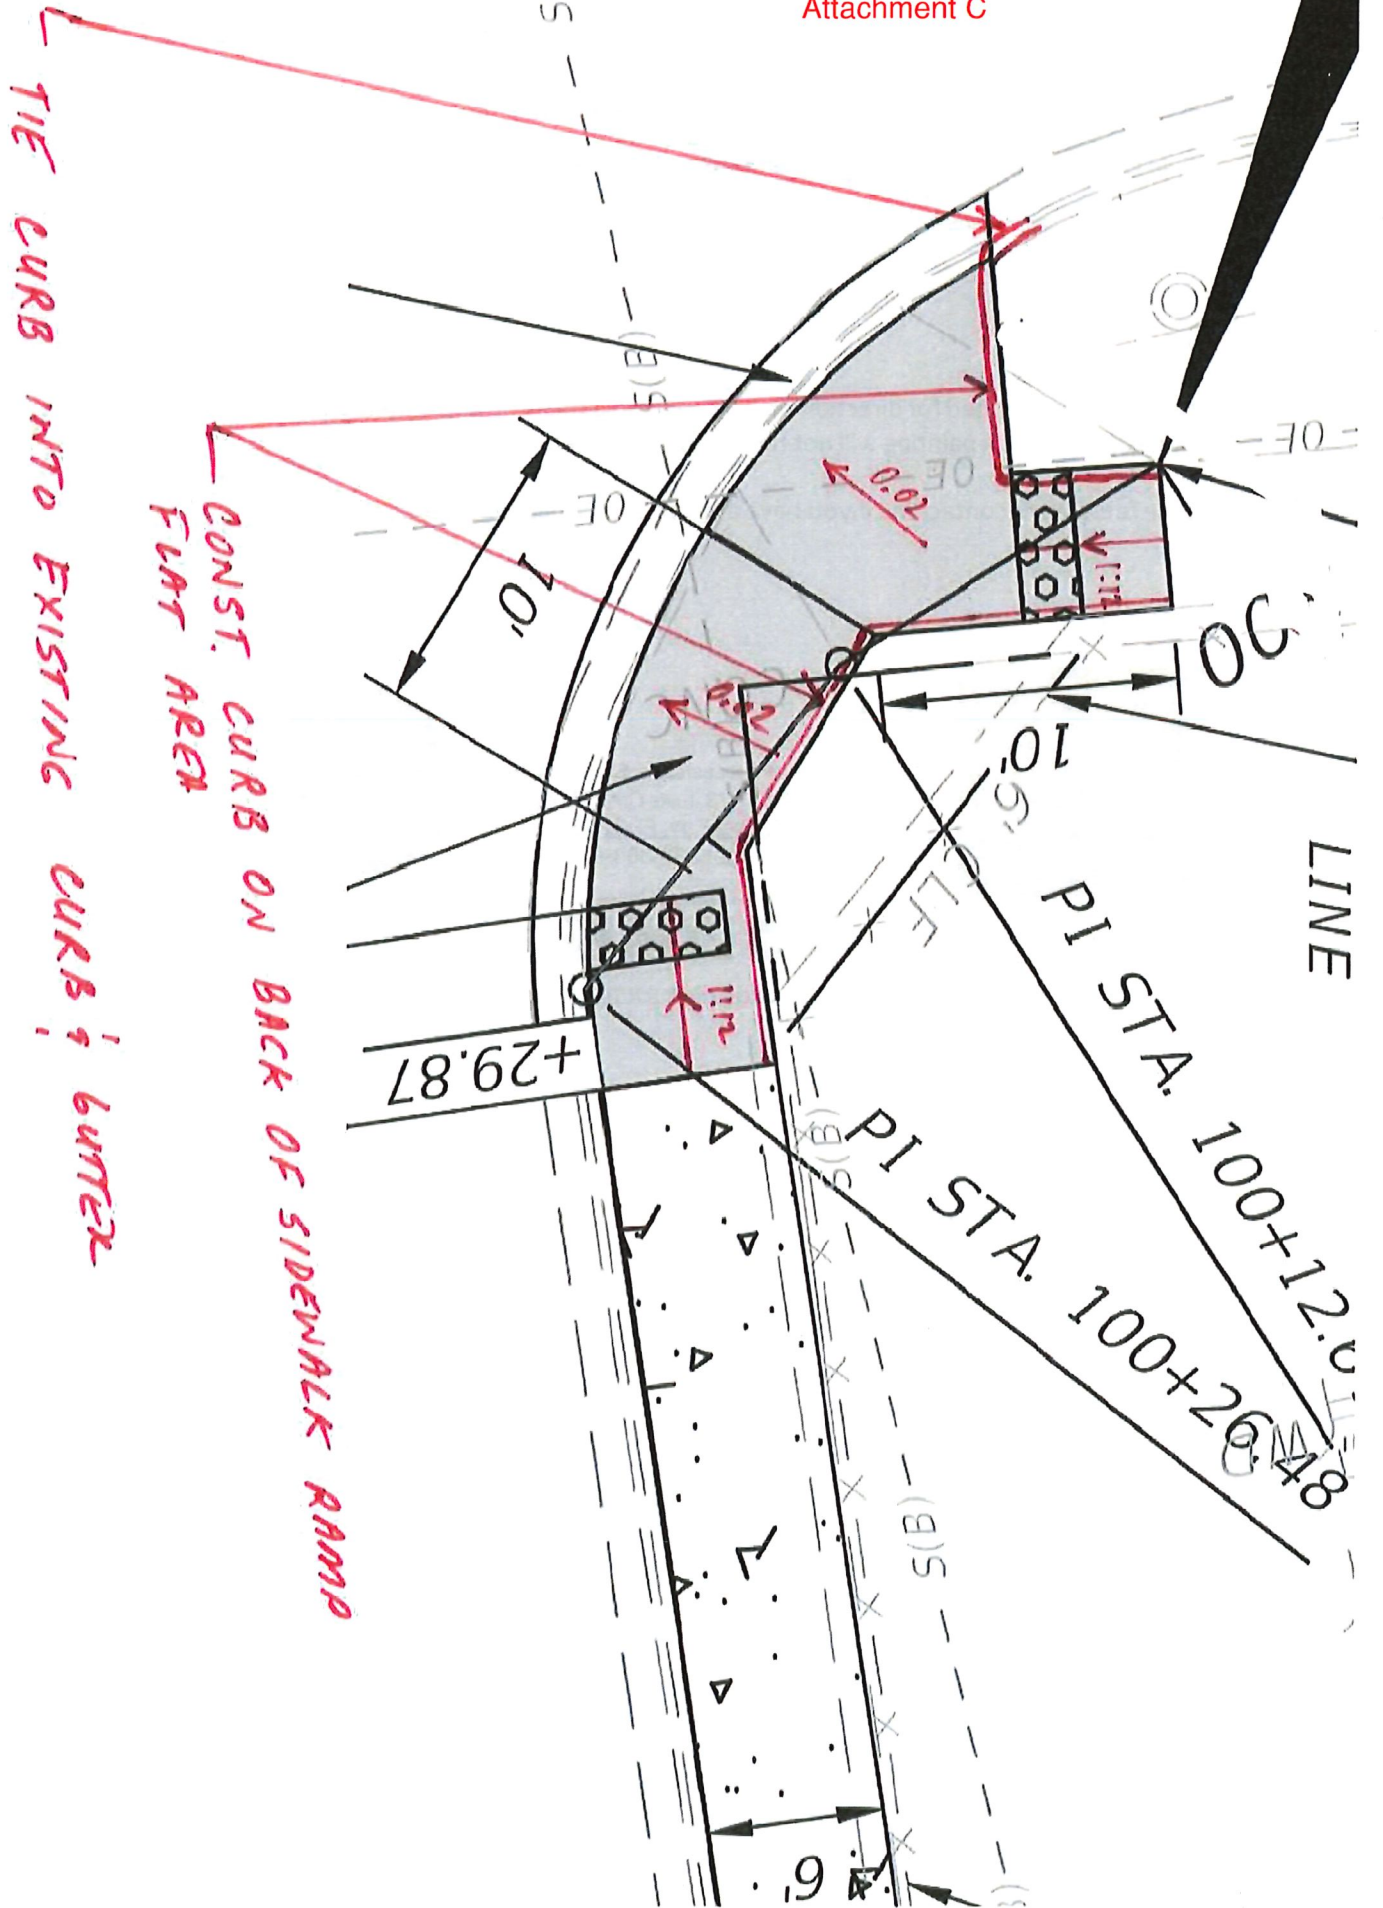 Attachment C
TIE CURB INTO EXISTING CURB & GUTTER
CONST. CURB ON BACK OF SIDEWALK RAMP
FLAT AREA
S
S(B)
OE
OE
OE
0.02
1:12
10'
10'
6'
CLF
LINE
0.02
CONC
1:12
+29.87
PI STA. 100+12.0
PI STA. 100+26.48
S(B)
S(B)
6'